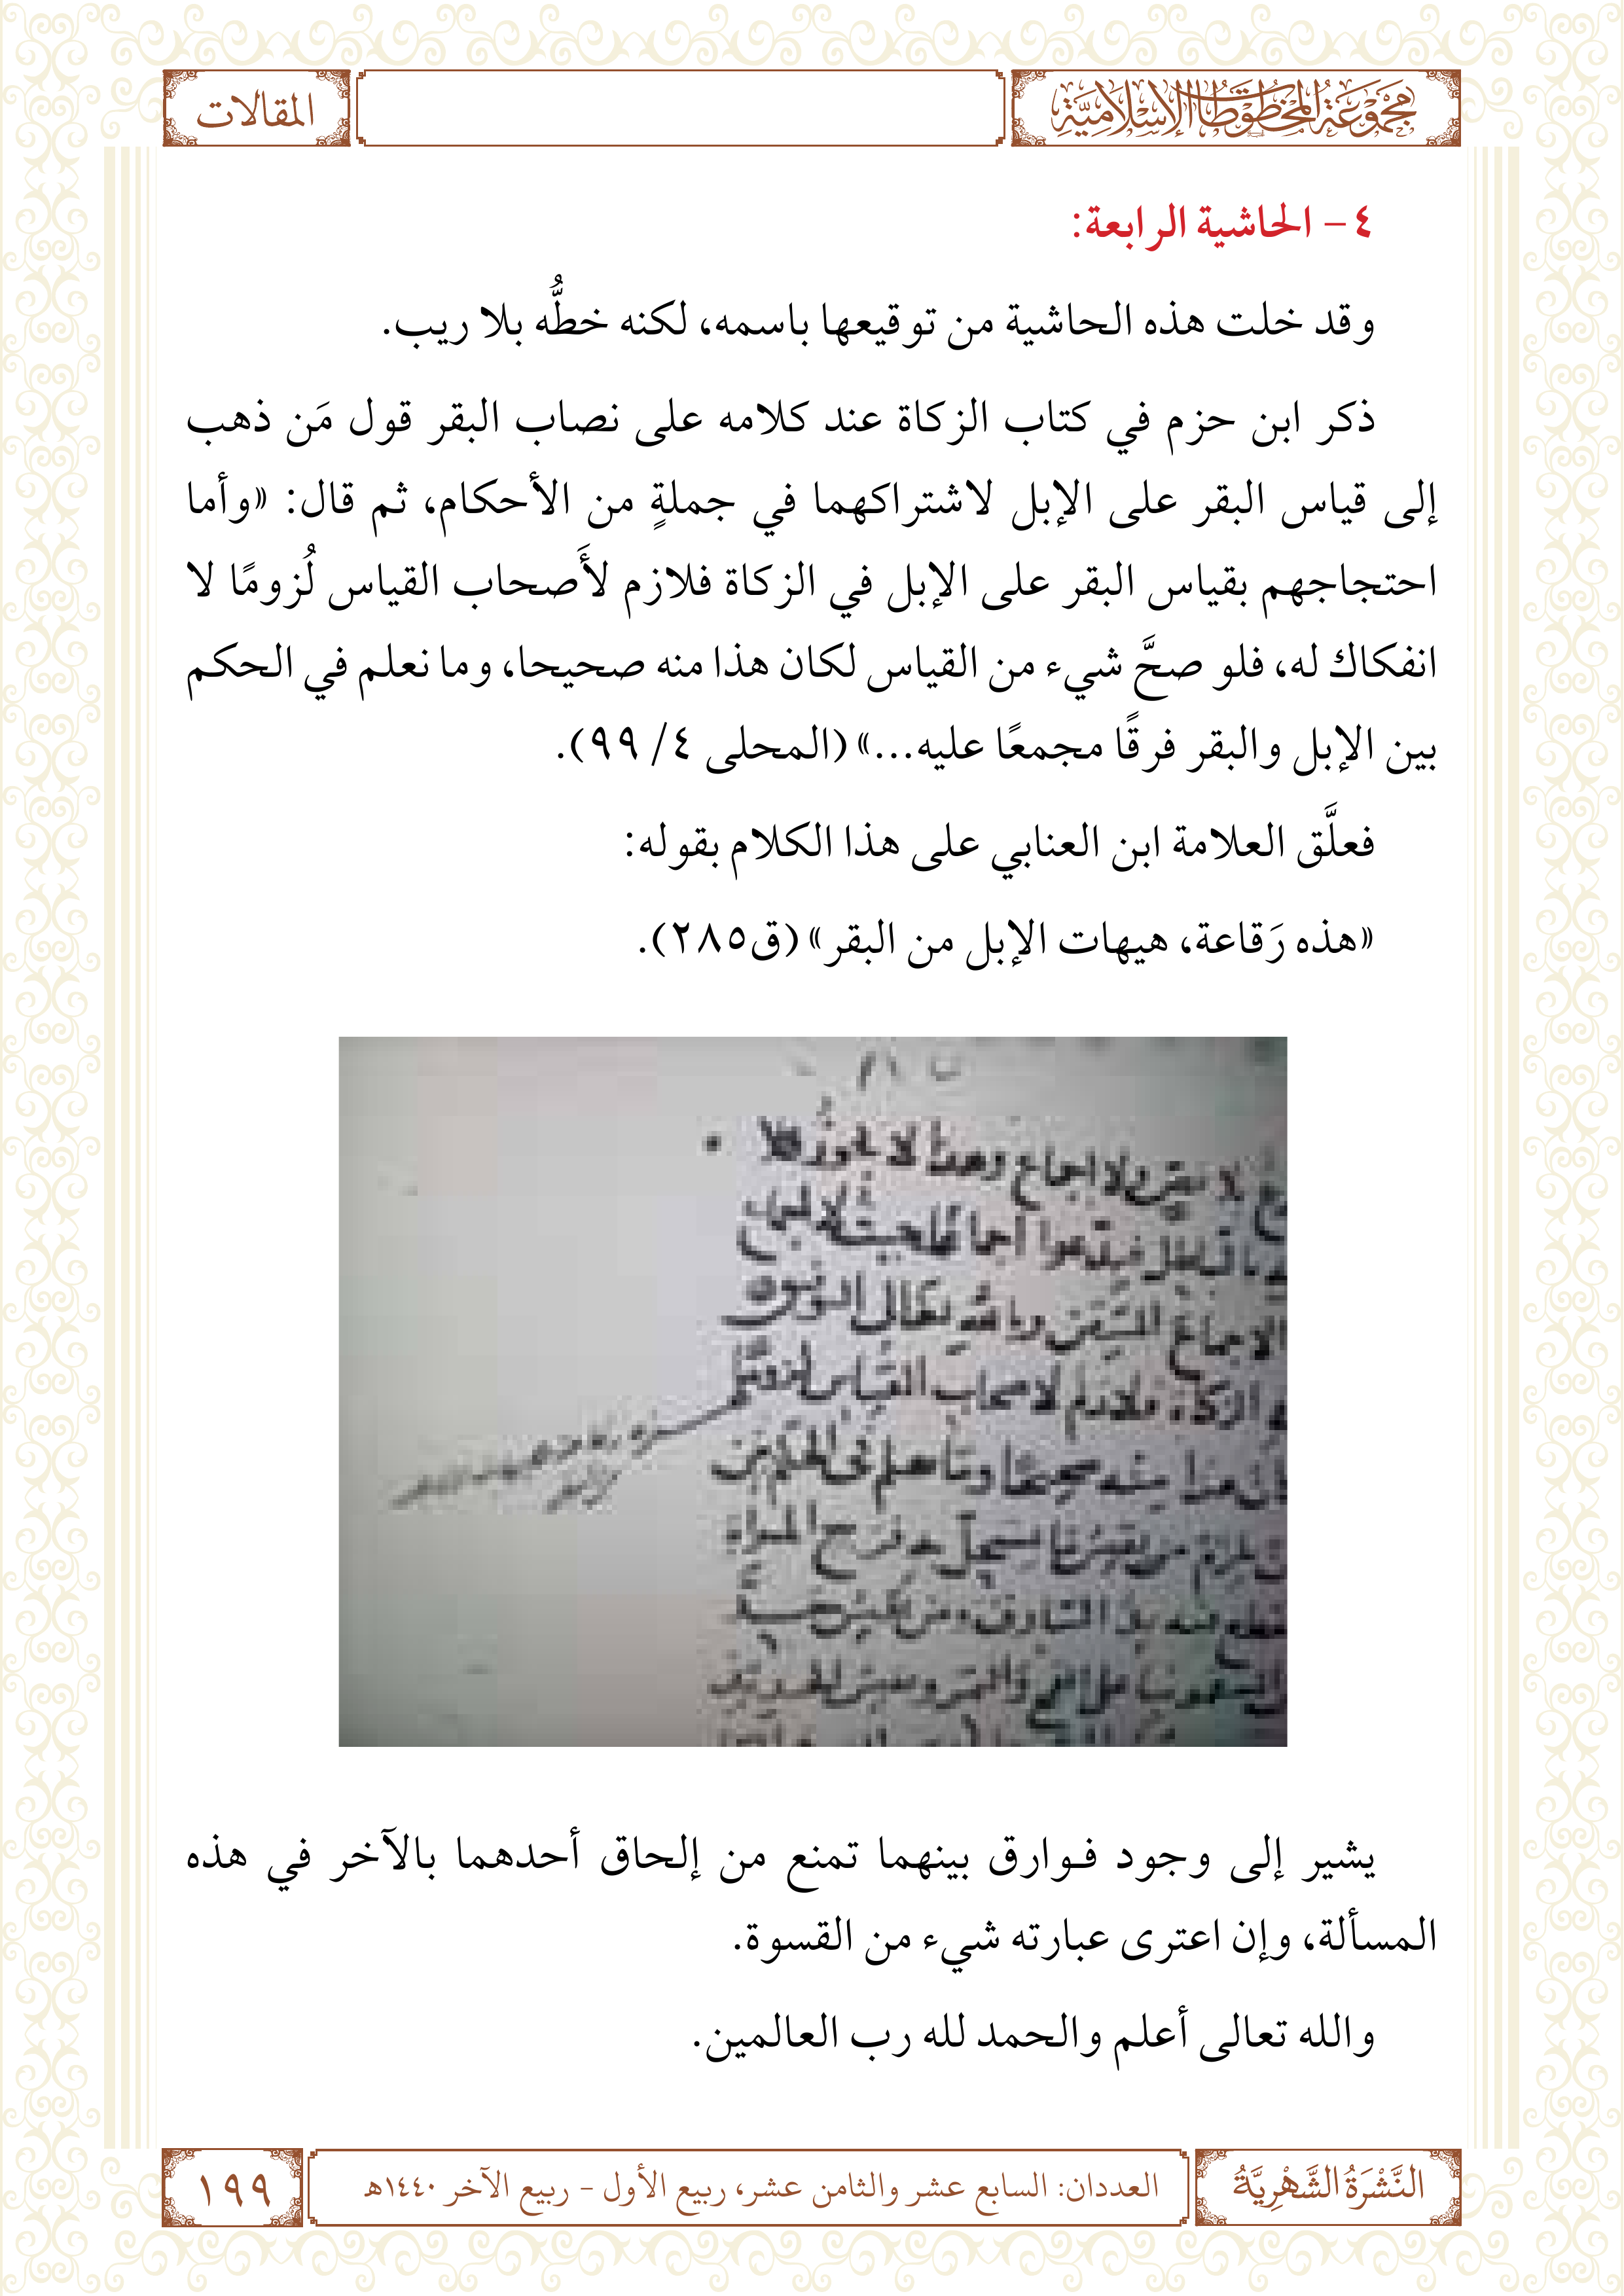 مَجْمُوعَةُ المَخْطُوطَاتِ الإِسْلَامِيَّةِ
المقالات
٤- الحاشية الرابعة:
وقد خلت هذه الحاشية من توقيعها باسمه، لكنه خطُّه بلا ريب.
ذكر ابن حزم في كتاب الزكاة عند كلامه على نصاب البقر قول مَن ذهب
إلى قياس البقر على الإبل لاشتراكهما في جملةٍ من الأحكام، ثم قال: «وأما
احتجاجهم بقياس البقر على الإبل في الزكاة فلازم لأَصحاب القياس لُزومًا لا
انفكاك له، فلو صحَّ شيء من القياس لكان هذا منه صحيحا، وما نعلم في الحكم
بين الإبل والبقر فرقًا مجمعًا عليه...» (المحلى ٤/ ٩٩).
فعلَّق العلامة ابن العنابي على هذا الكلام بقوله:
«هذه رَقاعة، هيهات الإبل من البقر» (ق٢٨٥).
ولا اجماع وهذا لا يجوز
الاجماع المتيقن وبالله تعالى التوفيق
الزكاة فلازم لاصحاب القياس لزوما
هذا منه صحيحا وما نعلم في الحكم بين
يشير إلى وجود فوارق بينهما تمنع من إلحاق أحدهما بالآخر في هذه
المسألة، وإن اعترى عبارته شيء من القسوة.
والله تعالى أعلم والحمد لله رب العالمين.
النَّشْرَةُ الشَّهْرِيَّةُ
العددان: السابع عشر والثامن عشر، ربيع الأول - ربيع الآخر ١٤٤٠هـ
١٩٩